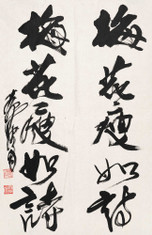 梅花瘦如詩
梅花瘦如詩